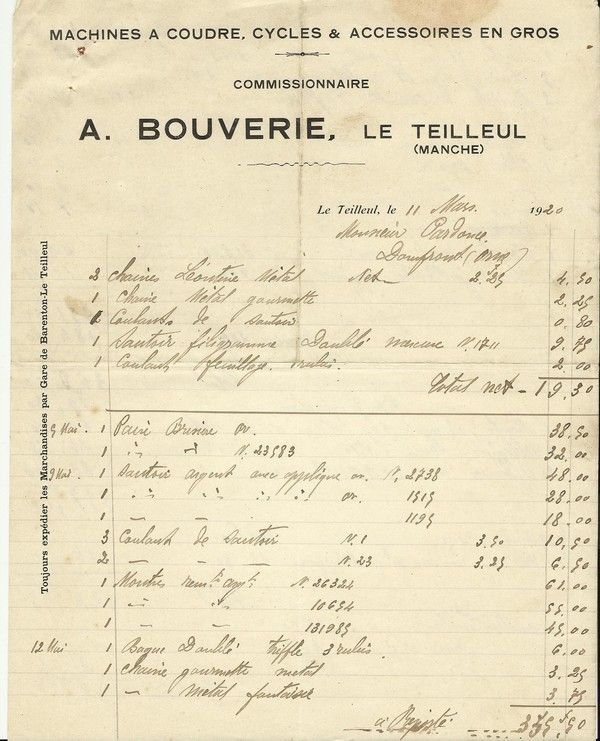 MACHINES A COUDRE, CYCLES & ACCESSOIRES EN GROS
COMMISSIONNAIRE
A. BOUVERIE, LE TEILLEUL
(MANCHE)
Le Teilleul, le 11 Mars 1920
Monsieur
Domfront (Orne)
2 Chaines Léontine Métal Net 2.25 4.50
1 Chaine Métal gourmette 2.25
2 Coulants de Sautoir 0.80
1 Sautoir filigramme Doublé N. 1711 9.75
1 Coulant feuillage rubis. 2.00
Total net - 19.30
5 Mai. 1 Paire Brisure or. 38.50
1 " " N. 23583 32.00
9 Mai 1 Sautoir argent avec applique or. N. 2738 48.00
1 " " " " or. 1515 28.00
1 - - 1195 18.00
3 Coulant de Sautoir N. 1 3.50 10,50
2 - - - N. 23 3.25 6.50
1 Montres rem. agt. N. 26324 61.00
1 " " 10654 55.00
1 - - 131985 45.00
12 Mai 1 Bague Doublé trèfle 3 rubis. 6.00
1 Chaine gourmette metal 3.25
1 - métal fantaisie 3.75
à Reporté. 355.50
Toujours expédier les Marchandises par Gare de Barenton-Le Teilleul